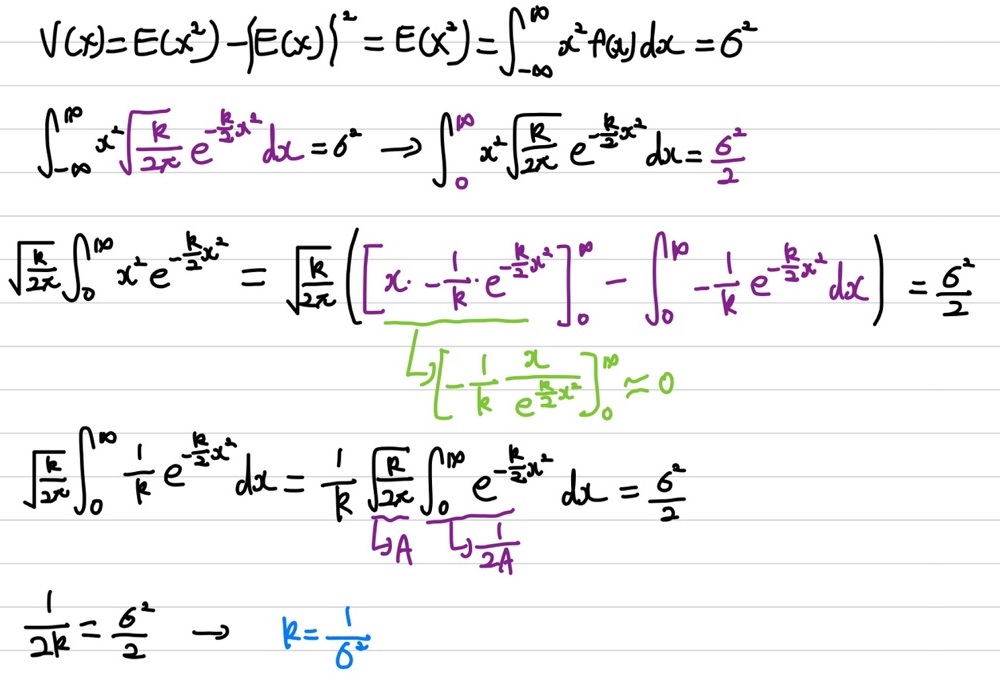 V(x)=E(x²)-{E(x)}²=E(x²)=∫_{-∞}^{∞} x² f(x) dx = σ²
∫_{-∞}^{∞} x² √(k/2π) e^{-k/2 x²} dx = σ² → ∫_{0}^{∞} x² √(k/2π) e^{-k/2 x²} dx = σ²/2
√(k/2π) ∫_{0}^{∞} x² e^{-k/2 x²} = √(k/2π) ([x · -1/k · e^{-k/2 x²}]_{0}^{∞} - ∫_{0}^{∞} -1/k e^{-k/2 x²} dx) = σ²/2
↳ [-1/k x/e^{k/2 x²}]_{0}^{∞} ≈ 0
√(k/2π) ∫_{0}^{∞} 1/k e^{-k/2 x²} dx = 1/k √(k/2π) ∫_{0}^{∞} e^{-k/2 x²} dx = σ²/2
↳ A ↳ 1/2A
1/2k = σ²/2 → k = 1/σ²